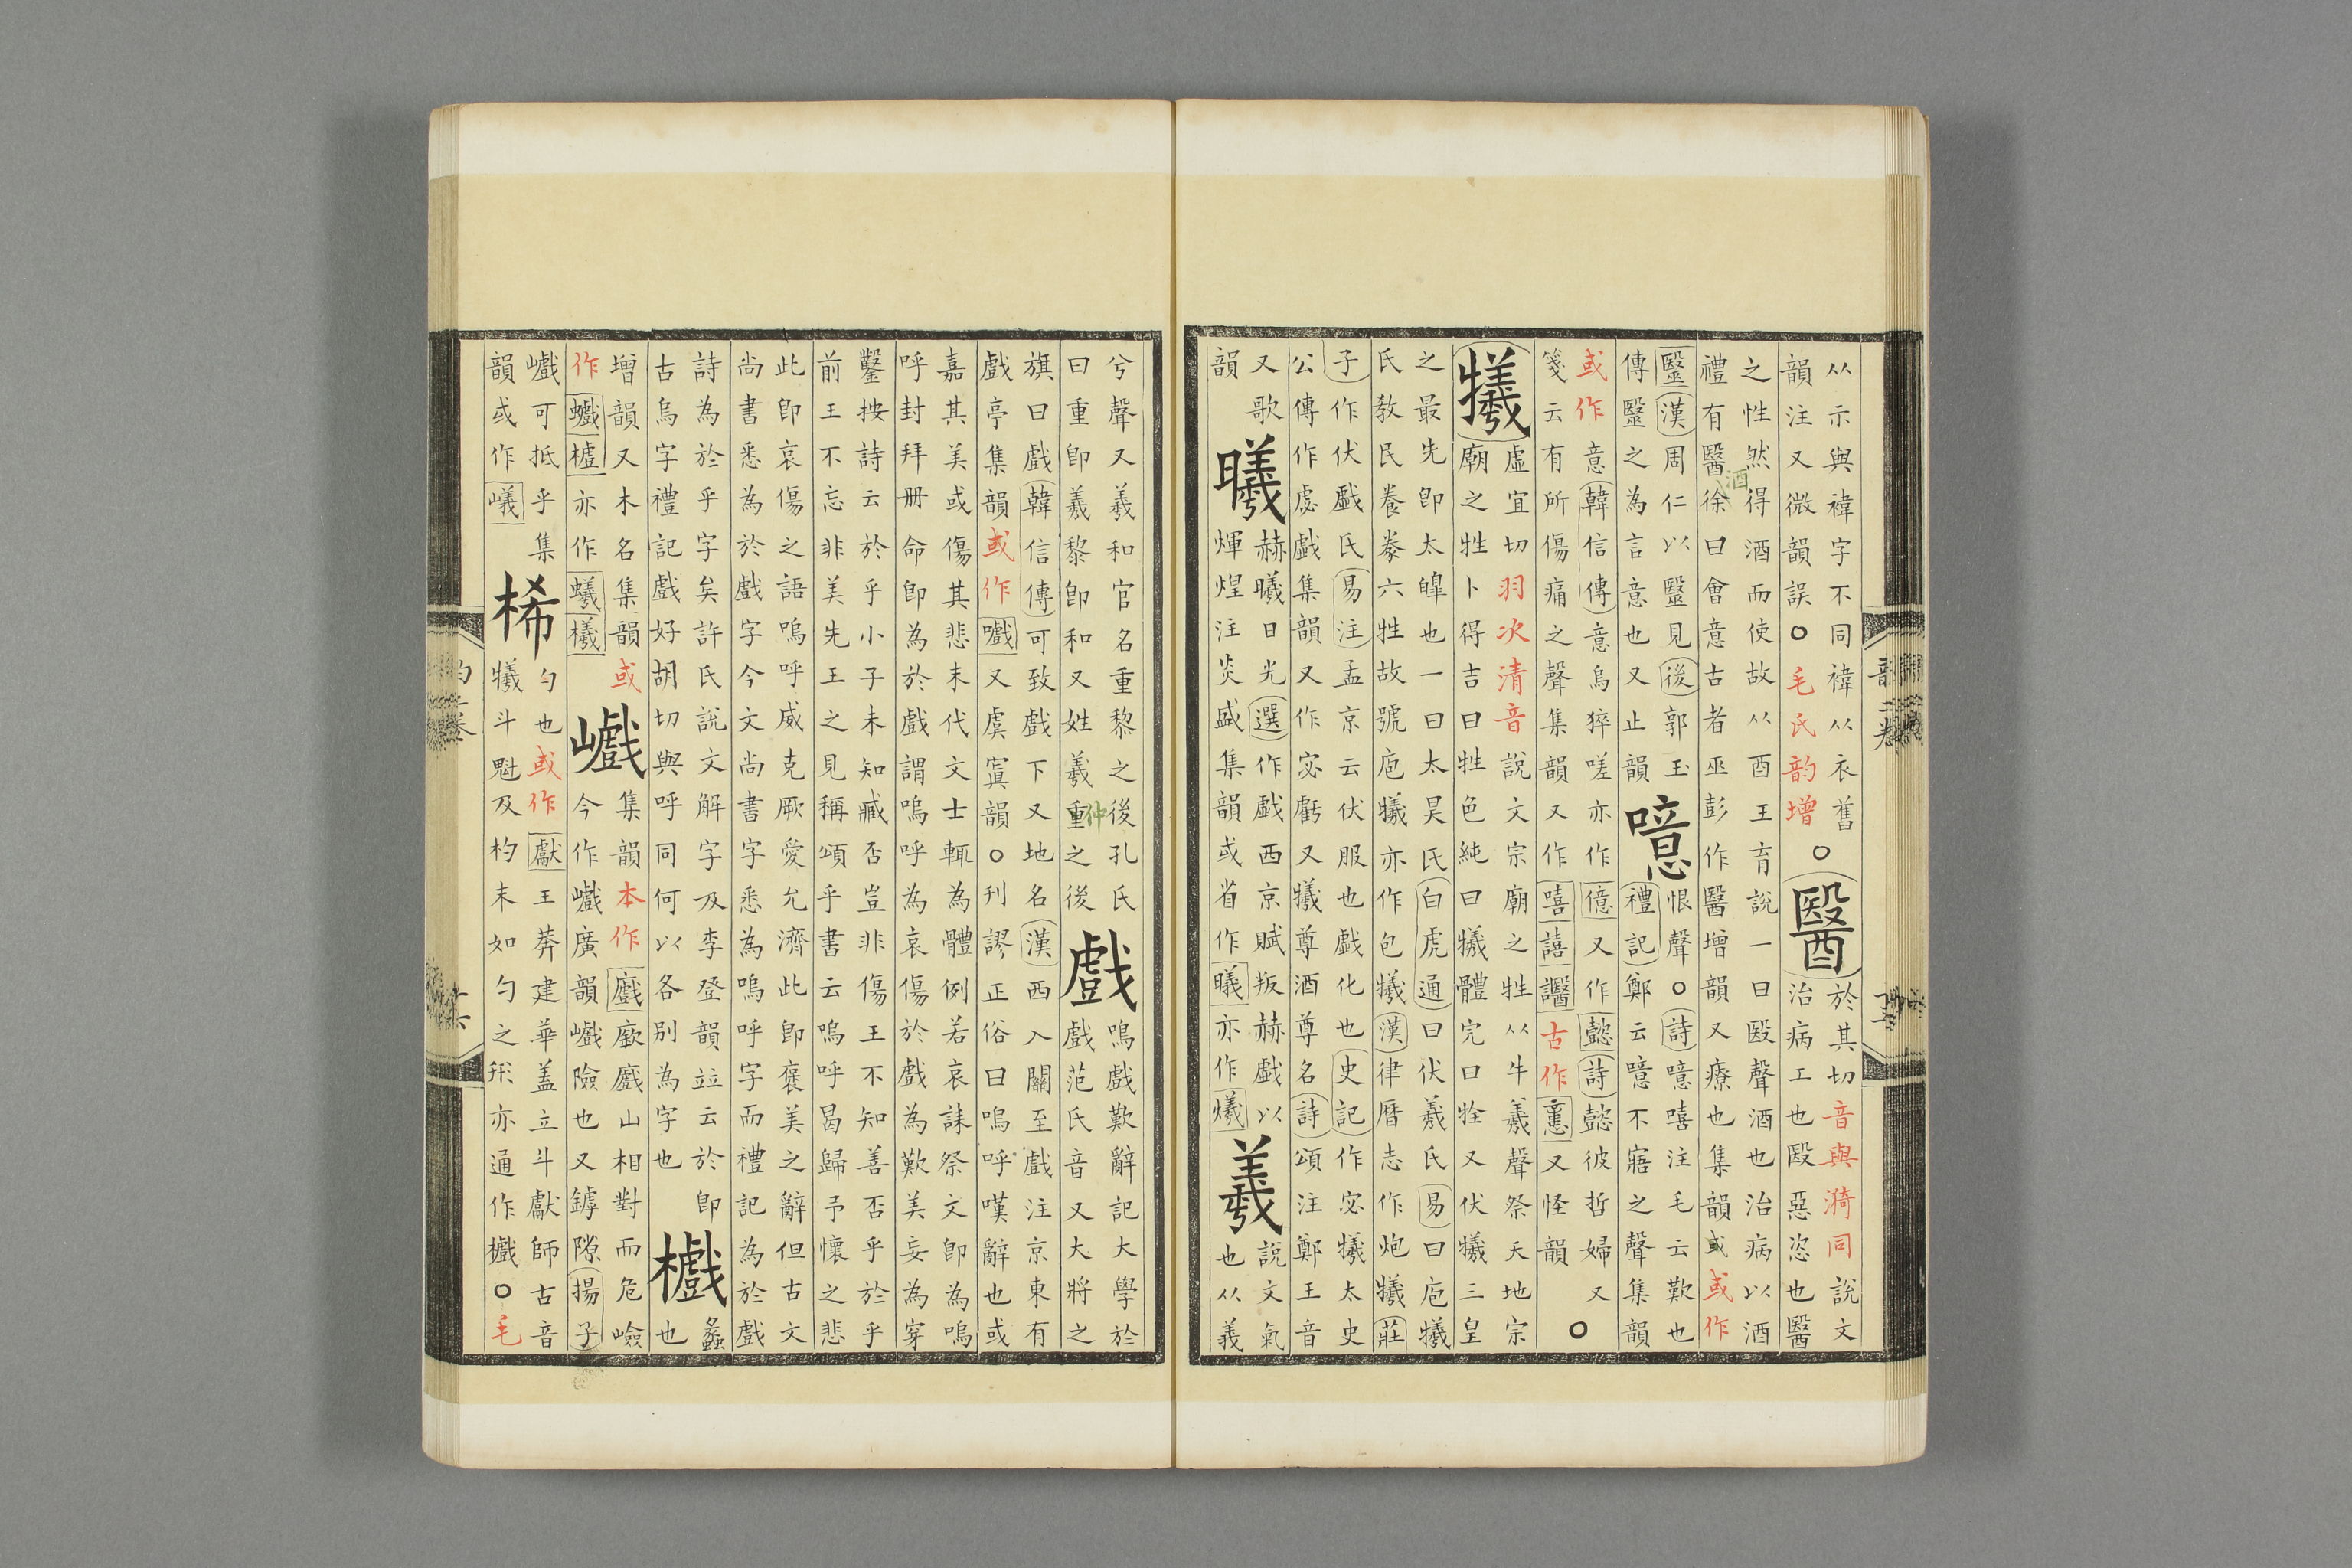 从示與褘字不同褘从衣舊
韻注又微韻誤○毛氏韵增
○
醫
於其切音與漪同說文
治病工也殹惡恣也醫
之性然得酒而使故从酉王育說一曰殹聲酒也治病以酒
禮有醫酒徐曰會意古者巫彭作醫增韻又療也集韻或作
毉漢周仁以毉見後郭玉
傳毉之為言意也又止韻
噫
恨聲○詩噫嘻注毛云歎也
禮記鄭云噫不寤之聲集韻
或作意韓信傳意烏猝嗟亦作億又作懿詩懿彼哲婦又
箋云有所傷痛之聲集韻又作嘻譆譩古作又怪韻
○
犧
虛宜切羽次清音說文宗廟之牲从牛羲聲祭天地宗
廟之牲卜得吉曰牲色純曰犧體完曰牷又伏犧三皇
之最先卽太皥也一曰太昊氏白虎通曰伏羲氏易曰庖犧
氏敎民養豢六牲故號庖犧亦作包犧漢律曆志作炮犧莊
子作伏戲氏易注孟京云伏服也戲化也史記作宓犧太史
公傳作虙戲集韻又作宓虧又犧尊酒尊名詩頌注鄭王音
又歌
韻
曦
赫曦日光選作戲西京賦叛赫戲以
煇煌注炎盛集韻或省作㬢亦作爔
羲
說文氣
也从義
兮聲又羲和官名重黎之後孔氏
曰重卽羲黎卽和又姓羲重仲之後
戲
嗚戲歎辭記大學於
戲范氏音又大將之
旗曰戲韓信傳可致戲下又地名漢西入關至戲注京東有
戲亭集韻或作嚱又虞寘韻○刊謬正俗曰嗚呼嘆辭也或
嘉其美或傷其悲末代文士輒為體例若哀誄祭文卽為嗚
呼封拜册命卽為於戲謂嗚呼為哀傷於戲為歎美妄為穿
鑿按詩云於乎小子未知臧否豈非傷王不知善否乎於乎
前王不忘非美先王之見稱頌乎書云嗚呼曷歸予懷之悲
此卽哀傷之語嗚呼威克厥愛允濟此卽褒美之辭但古文
尚書悉為於戲字今文尚書字悉為嗚呼字而禮記為於戲
詩為於乎字矣許氏說文解字及李登韻竝云於卽
古烏字禮記戲好胡切與呼同何以各別為字也
㰕
蠡
也
增韻又木名集韻或
作亦作檥
巇
集韻本作山相對而危嶮
今作巇廣韻巇險也又罅隙揚子
巇可抵乎集
韻或作㠖
桸
勺也或作獻王莽建華盖立斗獻師古音
犧斗魁及杓末如勺之形亦通作㰕○毛